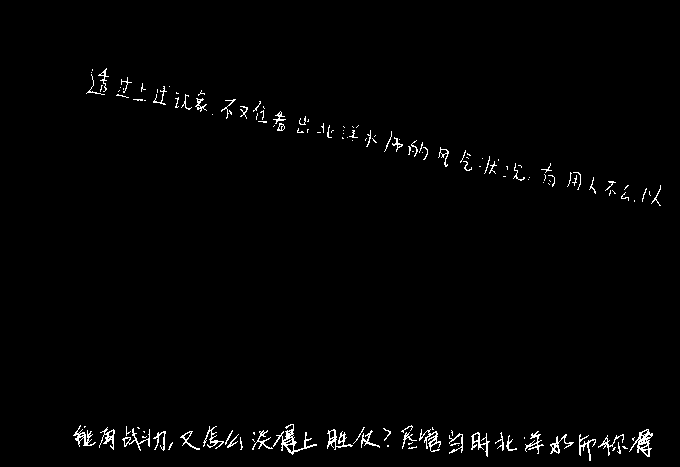 透过上述现象,不难看出北洋水师的风气状况,有用人不公,以
能有战力,又怎么谈得上胜仗?尽管当时北洋水师称得